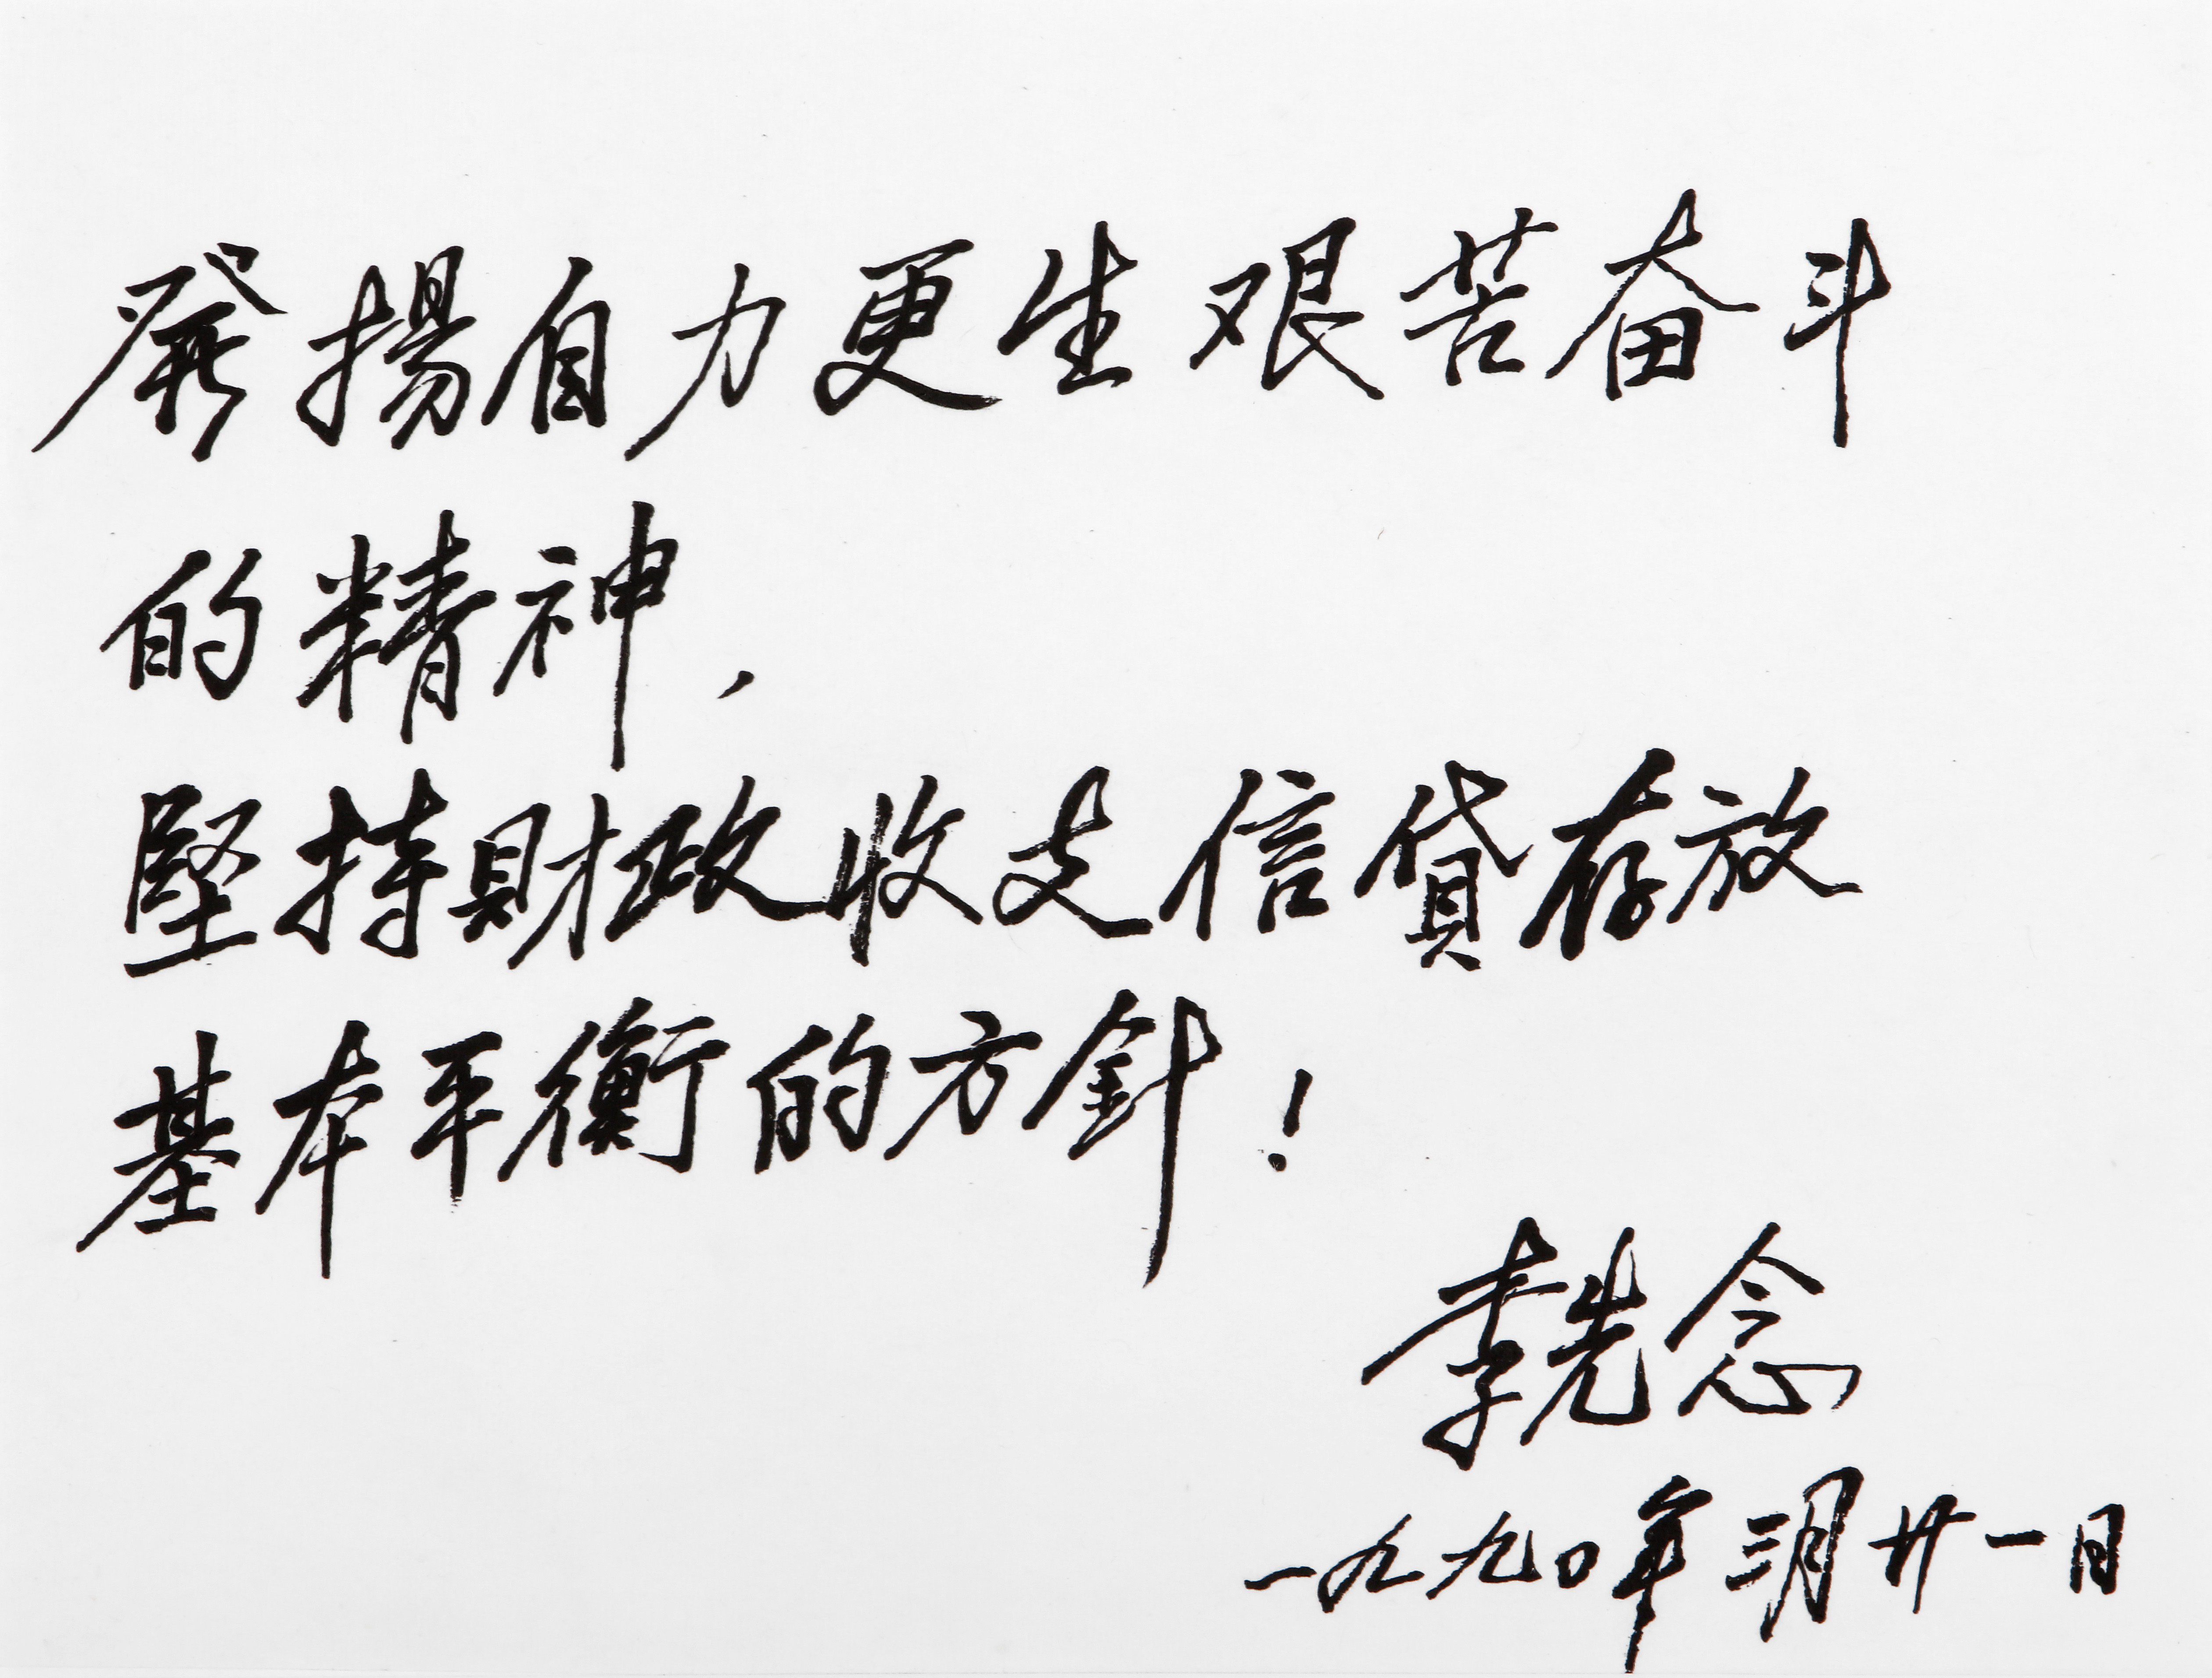 發揚自力更生艰苦奋斗
的精神，
堅持財政收支信貸存放
基本平衡的方針！
李先念
一九九〇年三月廿一日